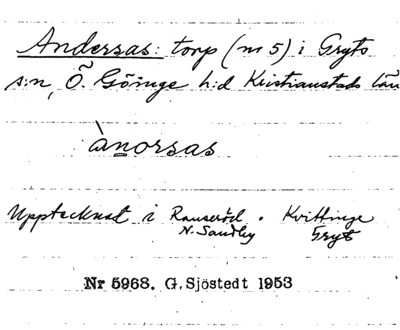 Andersas: torp (nr 5) i Gryts
s:n, Ö. Göinge h:d Kristianstads län
ànorsas
Upptecknat i Ranseröd. Kvittinge
N. Sandby Gryt
Nr 5968. G. Sjöstedt 1953